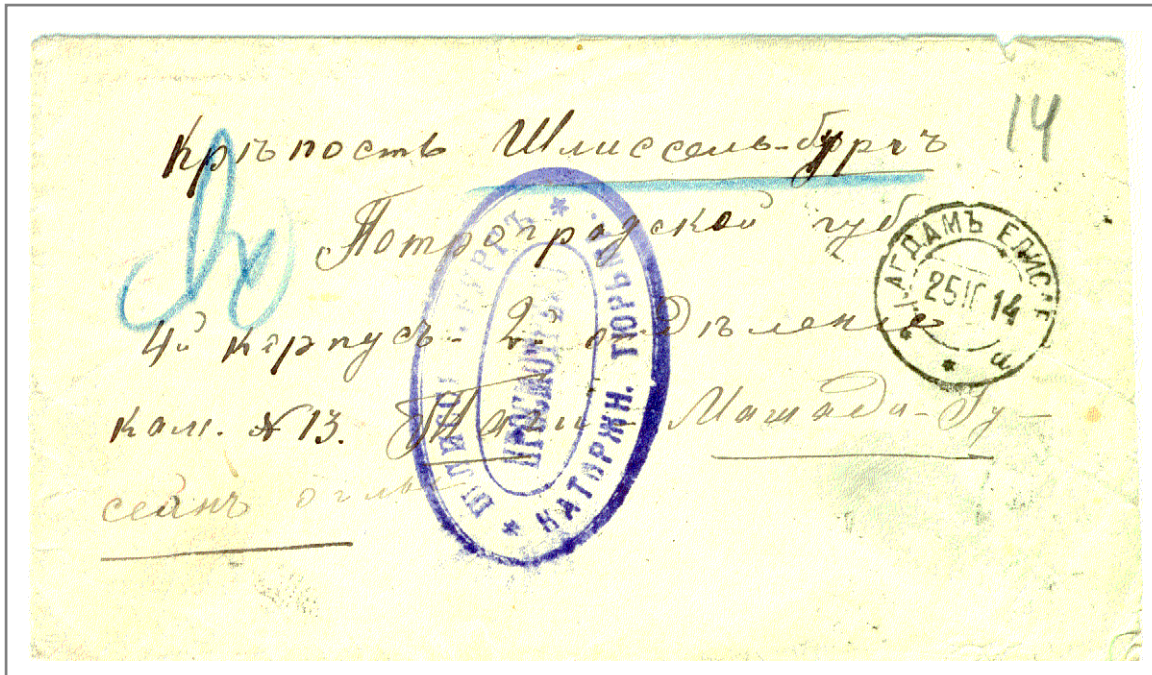 14
Крѣпость Шлиссель-бургъ
Потроградской губ
4й корпусъ - 2е отдѣленіе
кам. №13. Машади-Гу-
сейнъ оглы
* ШЛИССЕЛЬБУРГЪ *
КАТАРЖН. ТЮРЬМА.
ПРОСМОТРѢНО
АГДАМЪ ЕЛИС. Г.
25 14